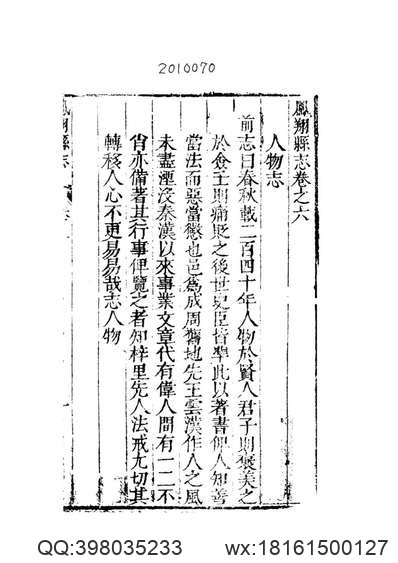 2010070
鳳翔縣志卷之六
人物志
前志曰春秋載二百四十年人物於賢人君子則褒美之
於僉壬則痛貶之後世史臣皆準此以著書俾人知善
當法而惡當懲也邑爲成周舊地先王雲漢作人之風
未盡湮没秦漢以來事業文章代有偉人間有一二不
肖亦備著其行事俾覽之者知梓里先人法戒尤切其
轉移人心不更易易哉志人物
鳳翔縣志
QQ:398035233 wx:18161500127